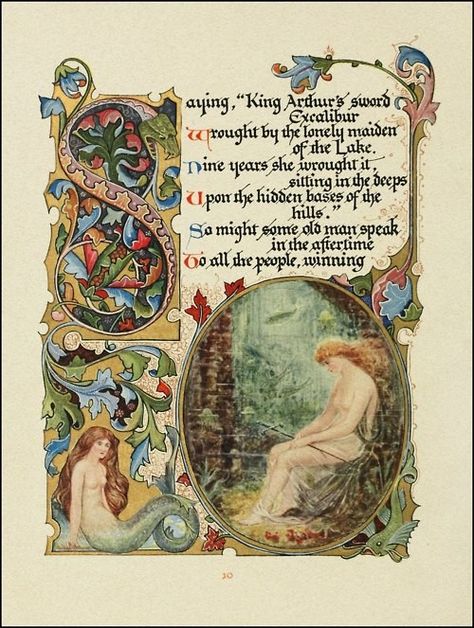 Saying, "King Arthur's sword
Excalibur
Wrought by the lonely maiden
of the Lake.
Nine years she wrought it,
sitting in the deeps
Upon the hidden bases of the
hills."
So might some old man speak
in the aftertime
To all the people, winning
20